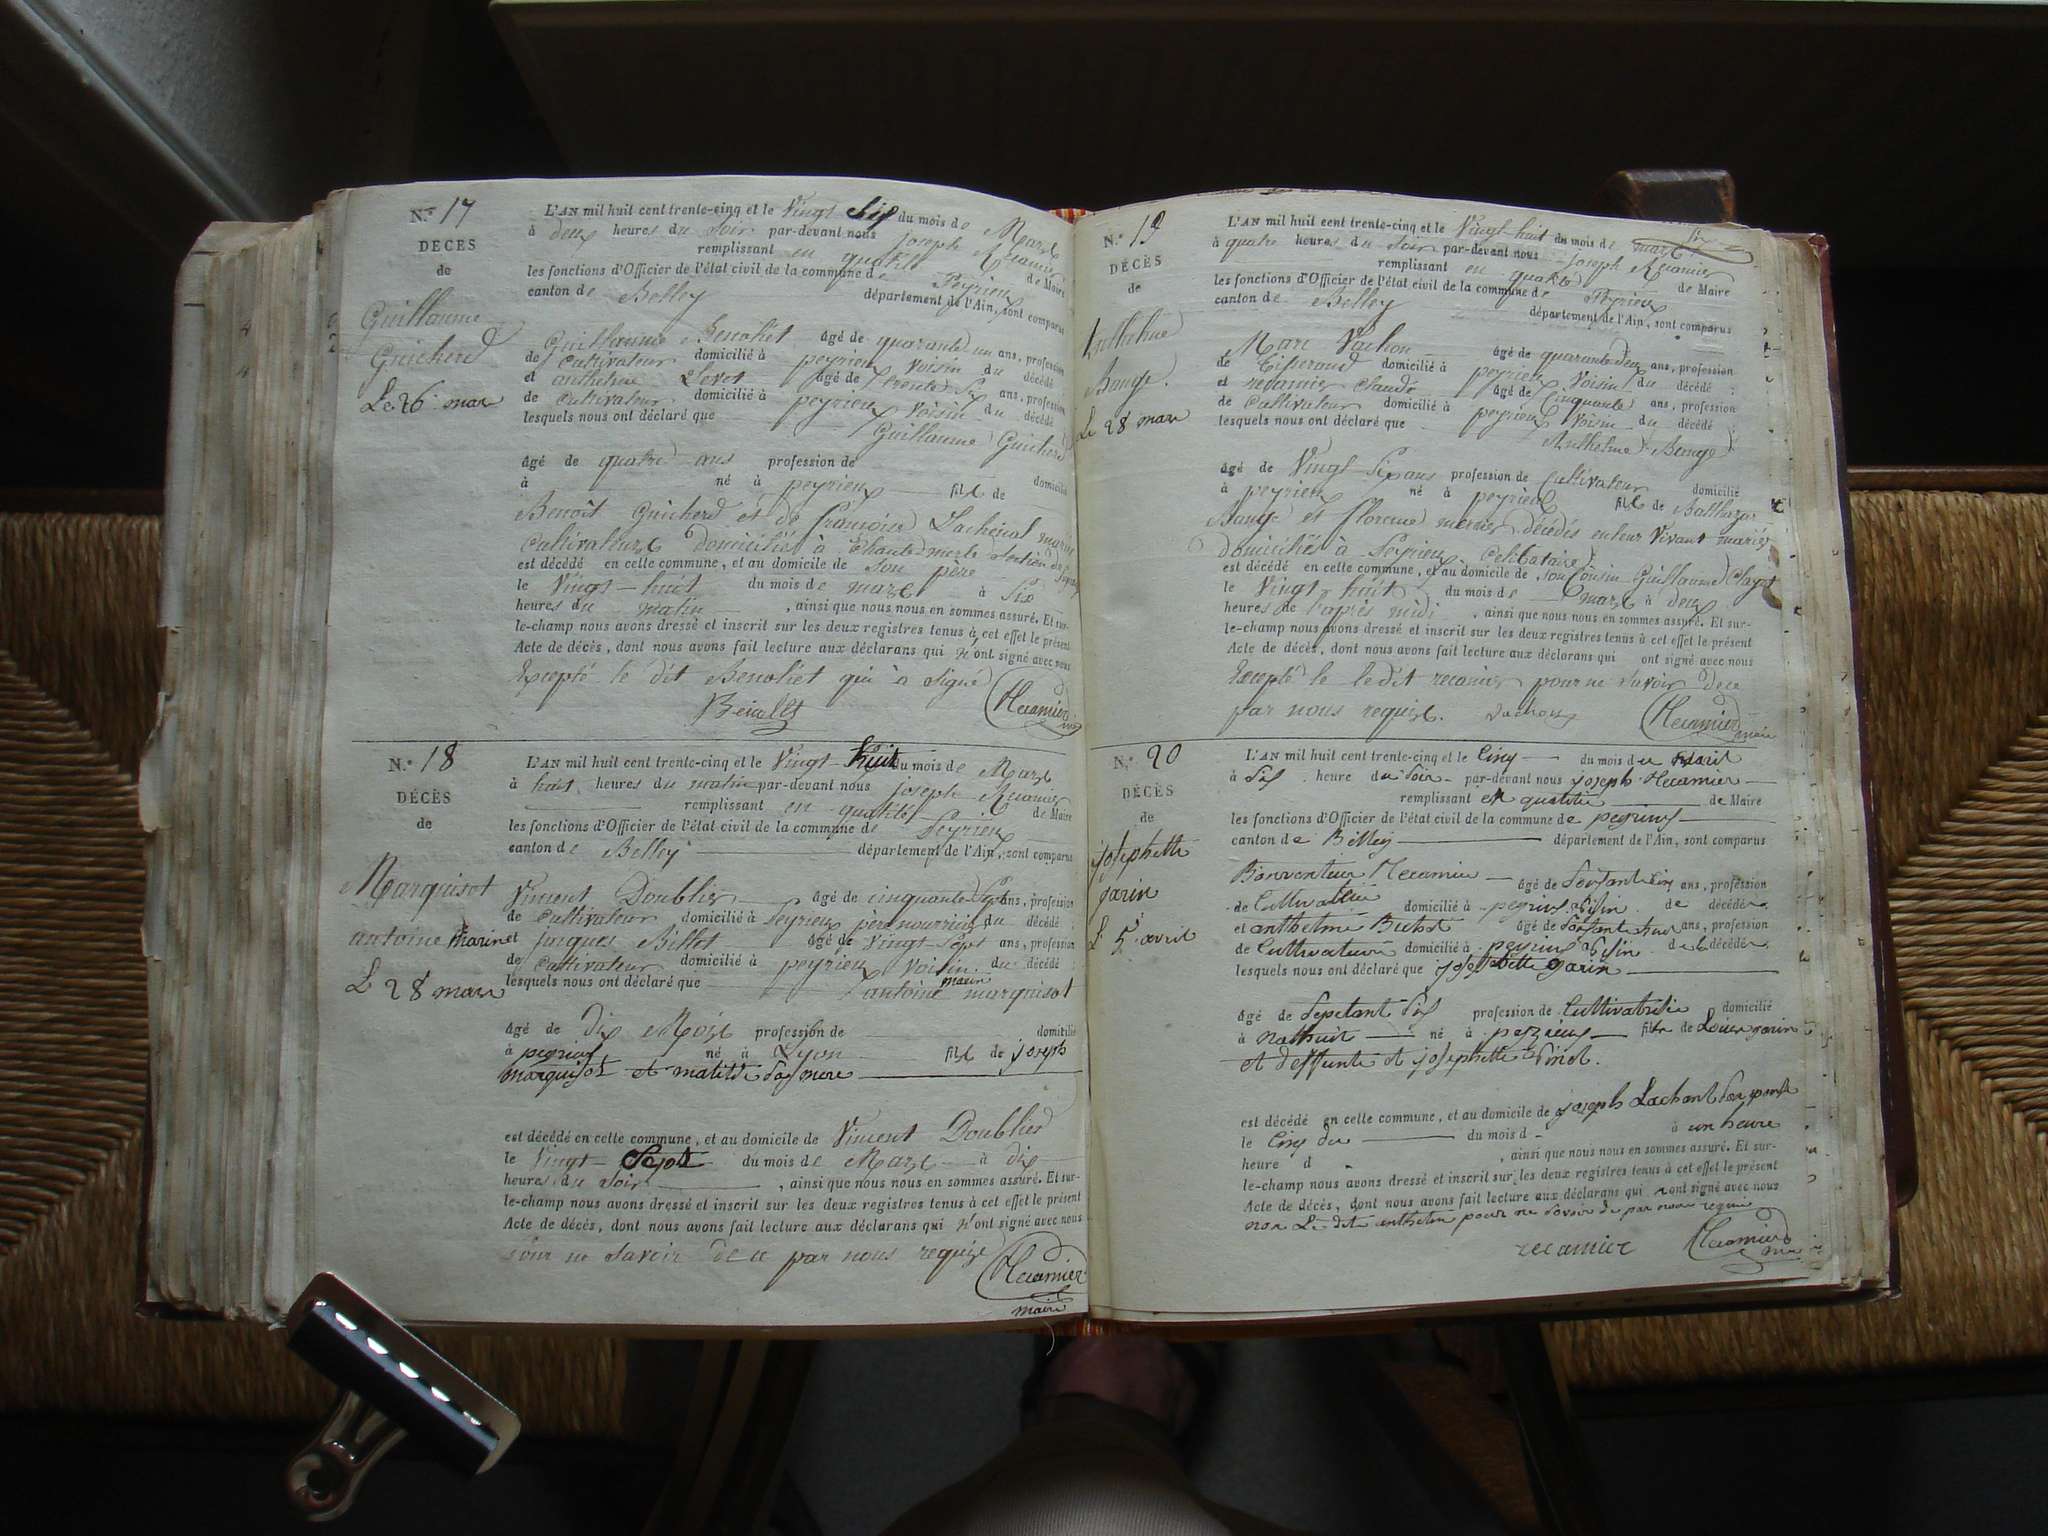 N.° 17
DÉCÈS
de
Guillaume
Guicherd
Le 26 mars
L'AN mil huit cent trente-cinq et le Vingt Six du mois de Mars
à deux heures du Soir par-devant nous joseph Recamier
remplissant en qualité de Maire
les fonctions d'Officier de l'état civil de la commune de Peyrieux
canton de Belley département de l'Ain, sont comparus
Guillaume Benoliet âgé de quarante un ans, profession
de Cultivateur domicilié à peyrieux Voisin du décédé
et anthelme âgé de trente Six ans, profession
de Cultivateur domicilié à peyrieux Voisin du décédé
lesquels nous ont déclaré que Guillaume Guicherd
âgé de quatre ans profession de domicilié
à né à peyrieux fils de
Benoit Guicherd et de françoise Lachenal mariés
Cultivateurs domiciliés à Chantemerle Section de
est décédé en cette commune, et au domicile de Son père
le Vingt-huit du mois de mars à Six
heures du matin, ainsi que nous nous en sommes assuré. Et sur-
le-champ nous avons dressé et inscrit sur les deux registres tenus à cet effet le présent
Acte de décès, dont nous avons fait lecture aux déclarans qui n'ont signé avec nous
Excepté le dit Benoliet qui à Signé Recamier
N.° 18
DÉCÈS
de
Marquisot
antoine Marin
Le 28 mars
L'AN mil huit cent trente-cinq et le Vingt-huit du mois de Mars
à huit heures du matin par-devant nous joseph Recamier
remplissant en qualité de Maire
les fonctions d'Officier de l'état civil de la commune de Peyrieux
canton de Belley département de l'Ain, sont comparus
Vincent Doublier âgé de cinquante Sept ans, profession
de Cultivateur domicilié à Peyrieux père nourricier du décédé
et jacques Billot âgé de Vingt Sept ans, profession
de Cultivateur domicilié à peyrieux Voisin du décédé
lesquels nous ont déclaré que antoine marin marquisot
âgé de dix Mois profession de domicilié
à peyrieux né à Lyon fils de joseph
marquisot et matilde Sa mere
est décédé en cette commune, et au domicile de Vincent Doublier
le Vingt-Sept du mois de Mars à dix
heures du Soir, ainsi que nous nous en sommes assuré. Et sur-
le-champ nous avons dressé et inscrit sur les deux registres tenus à cet effet le présent
Acte de décès, dont nous avons fait lecture aux déclarans qui n'ont signé avec nous
pour ne Savoir de ce par nous requize Recamier
maire
N.° 19
DÉCÈS
de
Anthelme
Bange.
Le 28 mars
L'AN mil huit cent trente-cinq et le Vingt huit du mois de mars
à quatre heures du Soir par-devant nous joseph Recamier
remplissant en qualité de Maire
les fonctions d'Officier de l'état civil de la commune de Peyrieux
canton de Belley département de l'Ain, sont comparus
Marc Vachon âgé de quarante deux ans, profession
de Tisserand domicilié à peyrieux Voisin du décédé
et recamier Claude âgé de Cinquante ans, profession
de Cultivateur domicilié à peyrieux Voisin du décédé
lesquels nous ont déclaré que Anthelme Bange
âgé de Vingt Six ans profession de Cultivateur domicilié
à peyrieux né à peyrieux fils de Balthazar
Bange et florence mercier décédés en leur Vivant mariés
domiciliés à Peyrieux Celibataire
est décédé en cette commune, et au domicile de son Cousin Guillaume Clayet
le Vingt huit du mois de mars à deux
heures de l'après midi, ainsi que nous nous en sommes assuré. Et sur-
le-champ nous avons dressé et inscrit sur les deux registres tenus à cet effet le présent
Acte de décès, dont nous avons fait lecture aux déclarans qui ont signé avec nous
Excepté le ledit recamier pour ne Savoir de ce
par nous requis. Vachon Recamier maire
N.° 20
DÉCÈS
de
josephette
garin
Le 5 avril
L'AN mil huit cent trente-cinq et le Cinq du mois du avril
à Six heure du Soir par-devant nous joseph Recamier
remplissant en qualité de Maire
les fonctions d'Officier de l'état civil de la commune de peyrieux
canton de Belley département de l'Ain, sont comparus
Bonventeur Recamier âgé de ans, profession
de Cultivateur domicilié à peyrieux voisin de décédée
et anthelme âgé de ans, profession
de Cultivateur domicilié à peyrieux voisin de la décédée
lesquels nous ont déclaré que josephette garin
âgé de Septant Six profession de Cultivatrice domicilié
à né à peyzieux fille de Louis garin
et deffunte et josephette
est décédé en cette commune, et au domicile de joseph Lachant
le Cinq du du mois d à un heure
heure d, ainsi que nous nous en sommes assuré. Et sur-
le-champ nous avons dressé et inscrit sur les deux registres tenus à cet effet le présent
Acte de décès, dont nous avons fait lecture aux déclarans qui ont signé avec nous
non Le dit anthelme pour ne Savoir de par nous requis
recamier Recamier